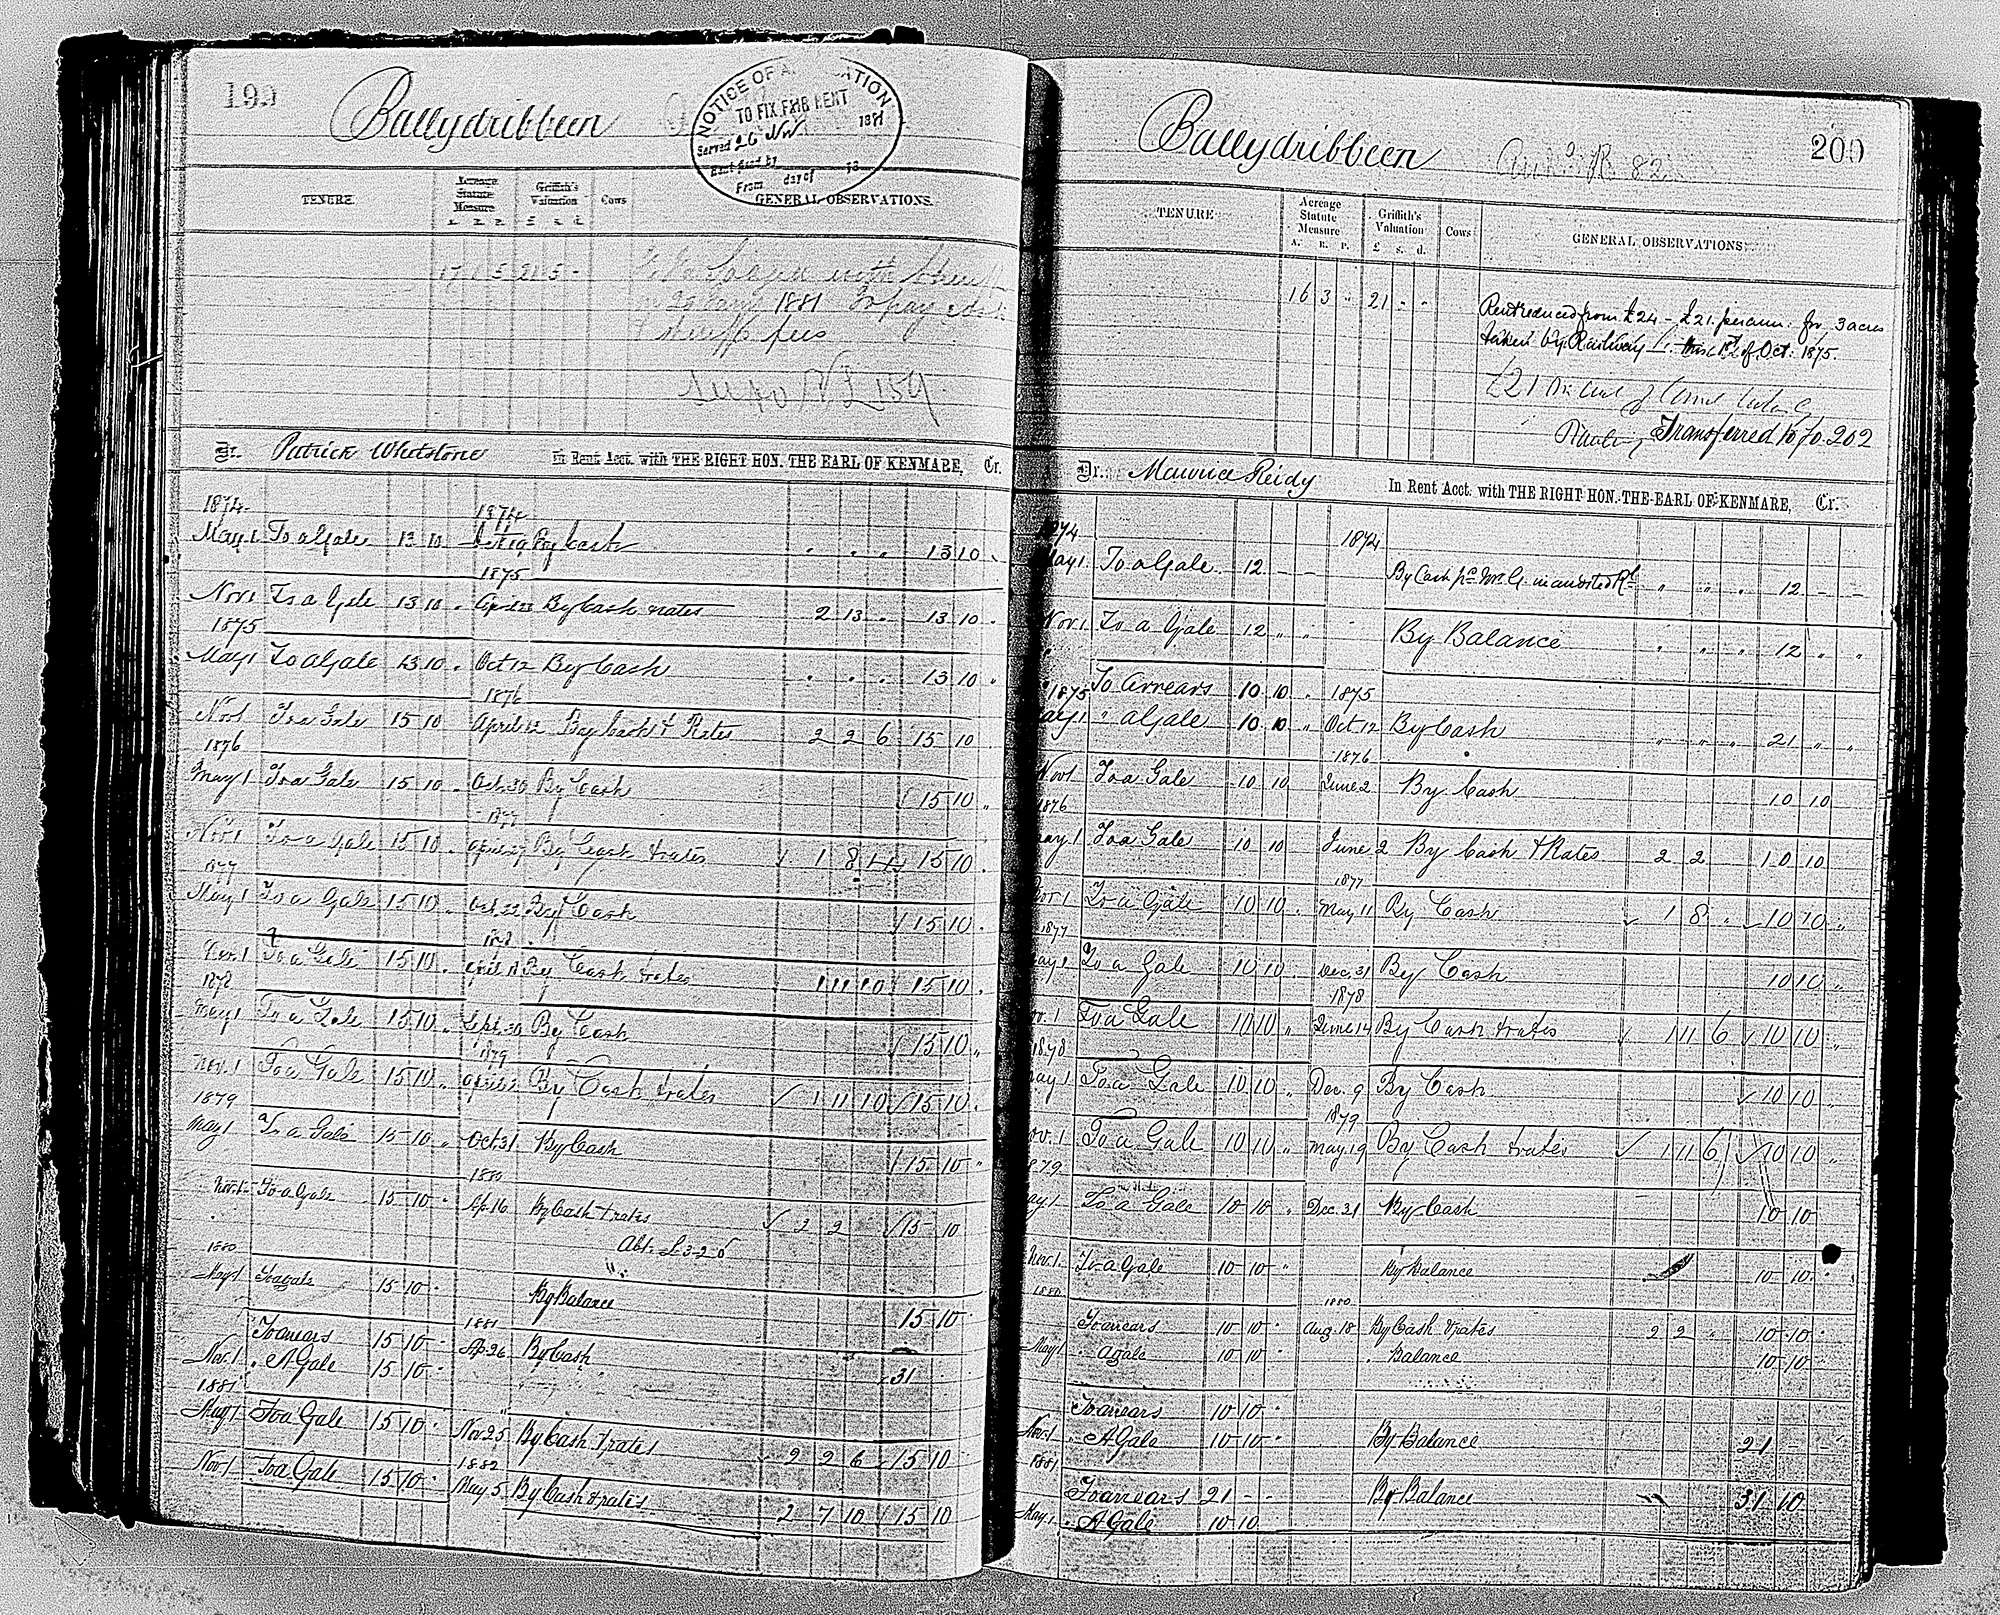 199
Ballydribbeen
NOTICE OF APPLICATION
TO FIX FAIR RENT
Served 26 Nov 1881
day of
From
TENURE.
Acreage Statute Measure
Griffith's Valuation
Cows
GENERAL OBSERVATIONS.
A. R. P. £ s. d.
17 1 5 21 5 -
with
1881 To pay
fees
£159
Dr. Patrick Whetstone In Rent Acct. with THE RIGHT HON. THE EARL OF KENMARE, Cr.
1874 1874
May 1 To a Gale 13 10 By Cash " " " 13 10 "
1875
Nov 1 To a Gale 13 10 " April By Cash & rates 2 13 " 13 10 "
1875
May 1 To a Gale 13 10 " Oct 12 By Cash " " " 13 10 "
1876
Nov 1 To a Gale 15 10 April 12 By Cash & Rates 2 2 6 15 10
1876
May 1 To a Gale 15 10 " Oct. 30 By Cash 15 10 "
1877
Nov 1 To a Gale 15 10 " April 27 By Cash & rates 1 8 11 15 10
1877
May 1 To a Gale 15 10 " Oct 22 By Cash 15 10 "
1878
Nov. 1 To a Gale 15 10 " April 18 By Cash & rates 1 11 10 15 10 "
1878
May 1 To a Gale 15 10 " Sept. 30 By Cash 15 10 "
1879
Nov. 1 To a Gale 15 10 " April 2 By Cash & rates 1 11 10 15 10 "
1879
May 1 To a Gale 15 10 " Oct 31 By Cash 15 10 "
1880
Nov. 1 To a Gale 15 10 " Ap. 16 By Cash & rates 2 2 15 10
Abt. £3-2-6
1880
May 1 To a gale 15 10 " By Balance 15 10 "
1881
To arrears 15 10 " Ap. 26 By Cash 31
Nov. 1 " A Gale 15 10 "
1881
May 1 To a Gale 15 10 " Nov. 25 By Cash & rates 2 2 6 15 10
1882
Nov 1 To a Gale 15 10 " May 5 By Cash & rates. 2 7 10 15 10
200
Ballydribbeen
82
TENURE
Acreage Statute Measure
Griffith's Valuation
Cows
GENERAL OBSERVATIONS
A. R. P. £ s. d.
16 3 " 21 - -
Rent reduced from £24 - £21 per ann: for 3 acres
taken by Railway Co. this 1st of Oct: 1875.
£21
Transferred to fo. 202
Dr. Maurice Reidy In Rent Acct. with THE RIGHT HON. THE EARL OF KENMARE, Cr.
1874 1874
May 1 To a Gale 12 - - By Cash pr Mr. G. " " " 12 - -
Nov. 1 To a Gale 12 " " By Balance " " " 12 " "
To Arrears 10 10 " 1875
1875
May 1 " a Gale 10 10 " Oct 12 By Cash " " " 21 " "
1876
Nov 1 To a Gale 10 10 June 2 By Cash 10 10
1876
May 1 To a Gale 10 10 June 2 By Cash & Rates 2 2 10 10
1877
Nov 1 To a Gale 10 10 " May 11 By Cash 1 8 " 10 10 "
1877
May 1 To a Gale 10 10 " Dec. 31 By Cash 10 10 "
1878
Nov. 1 To a Gale 10 10 " June 14 By Cash & rates 1 11 6 10 10 "
1878
May 1 To a Gale 10 10 " Dec. 9 By Cash 10 10 "
1879
Nov. 1 To a Gale 10 10 " May 19 By Cash & rates 1 11 6 10 10 "
1879
May 1 To a Gale 10 10 " Dec. 31 By Cash 10 10
Nov. 1. To a Gale 10 10 " By Balance 10 10 "
1880 1880
To arrears 10 10 " Aug. 18 By Cash & rates 2 2 " 10 10 "
May 1 " a gale 10 10 " " Balance 10 10 "
To arrears 10 10 "
Nov. 1 " A Gale 10 10 " By Balance 21 - -
1881
To arrears 21 - - By Balance 31 10
May 1 " A Gale 10 10